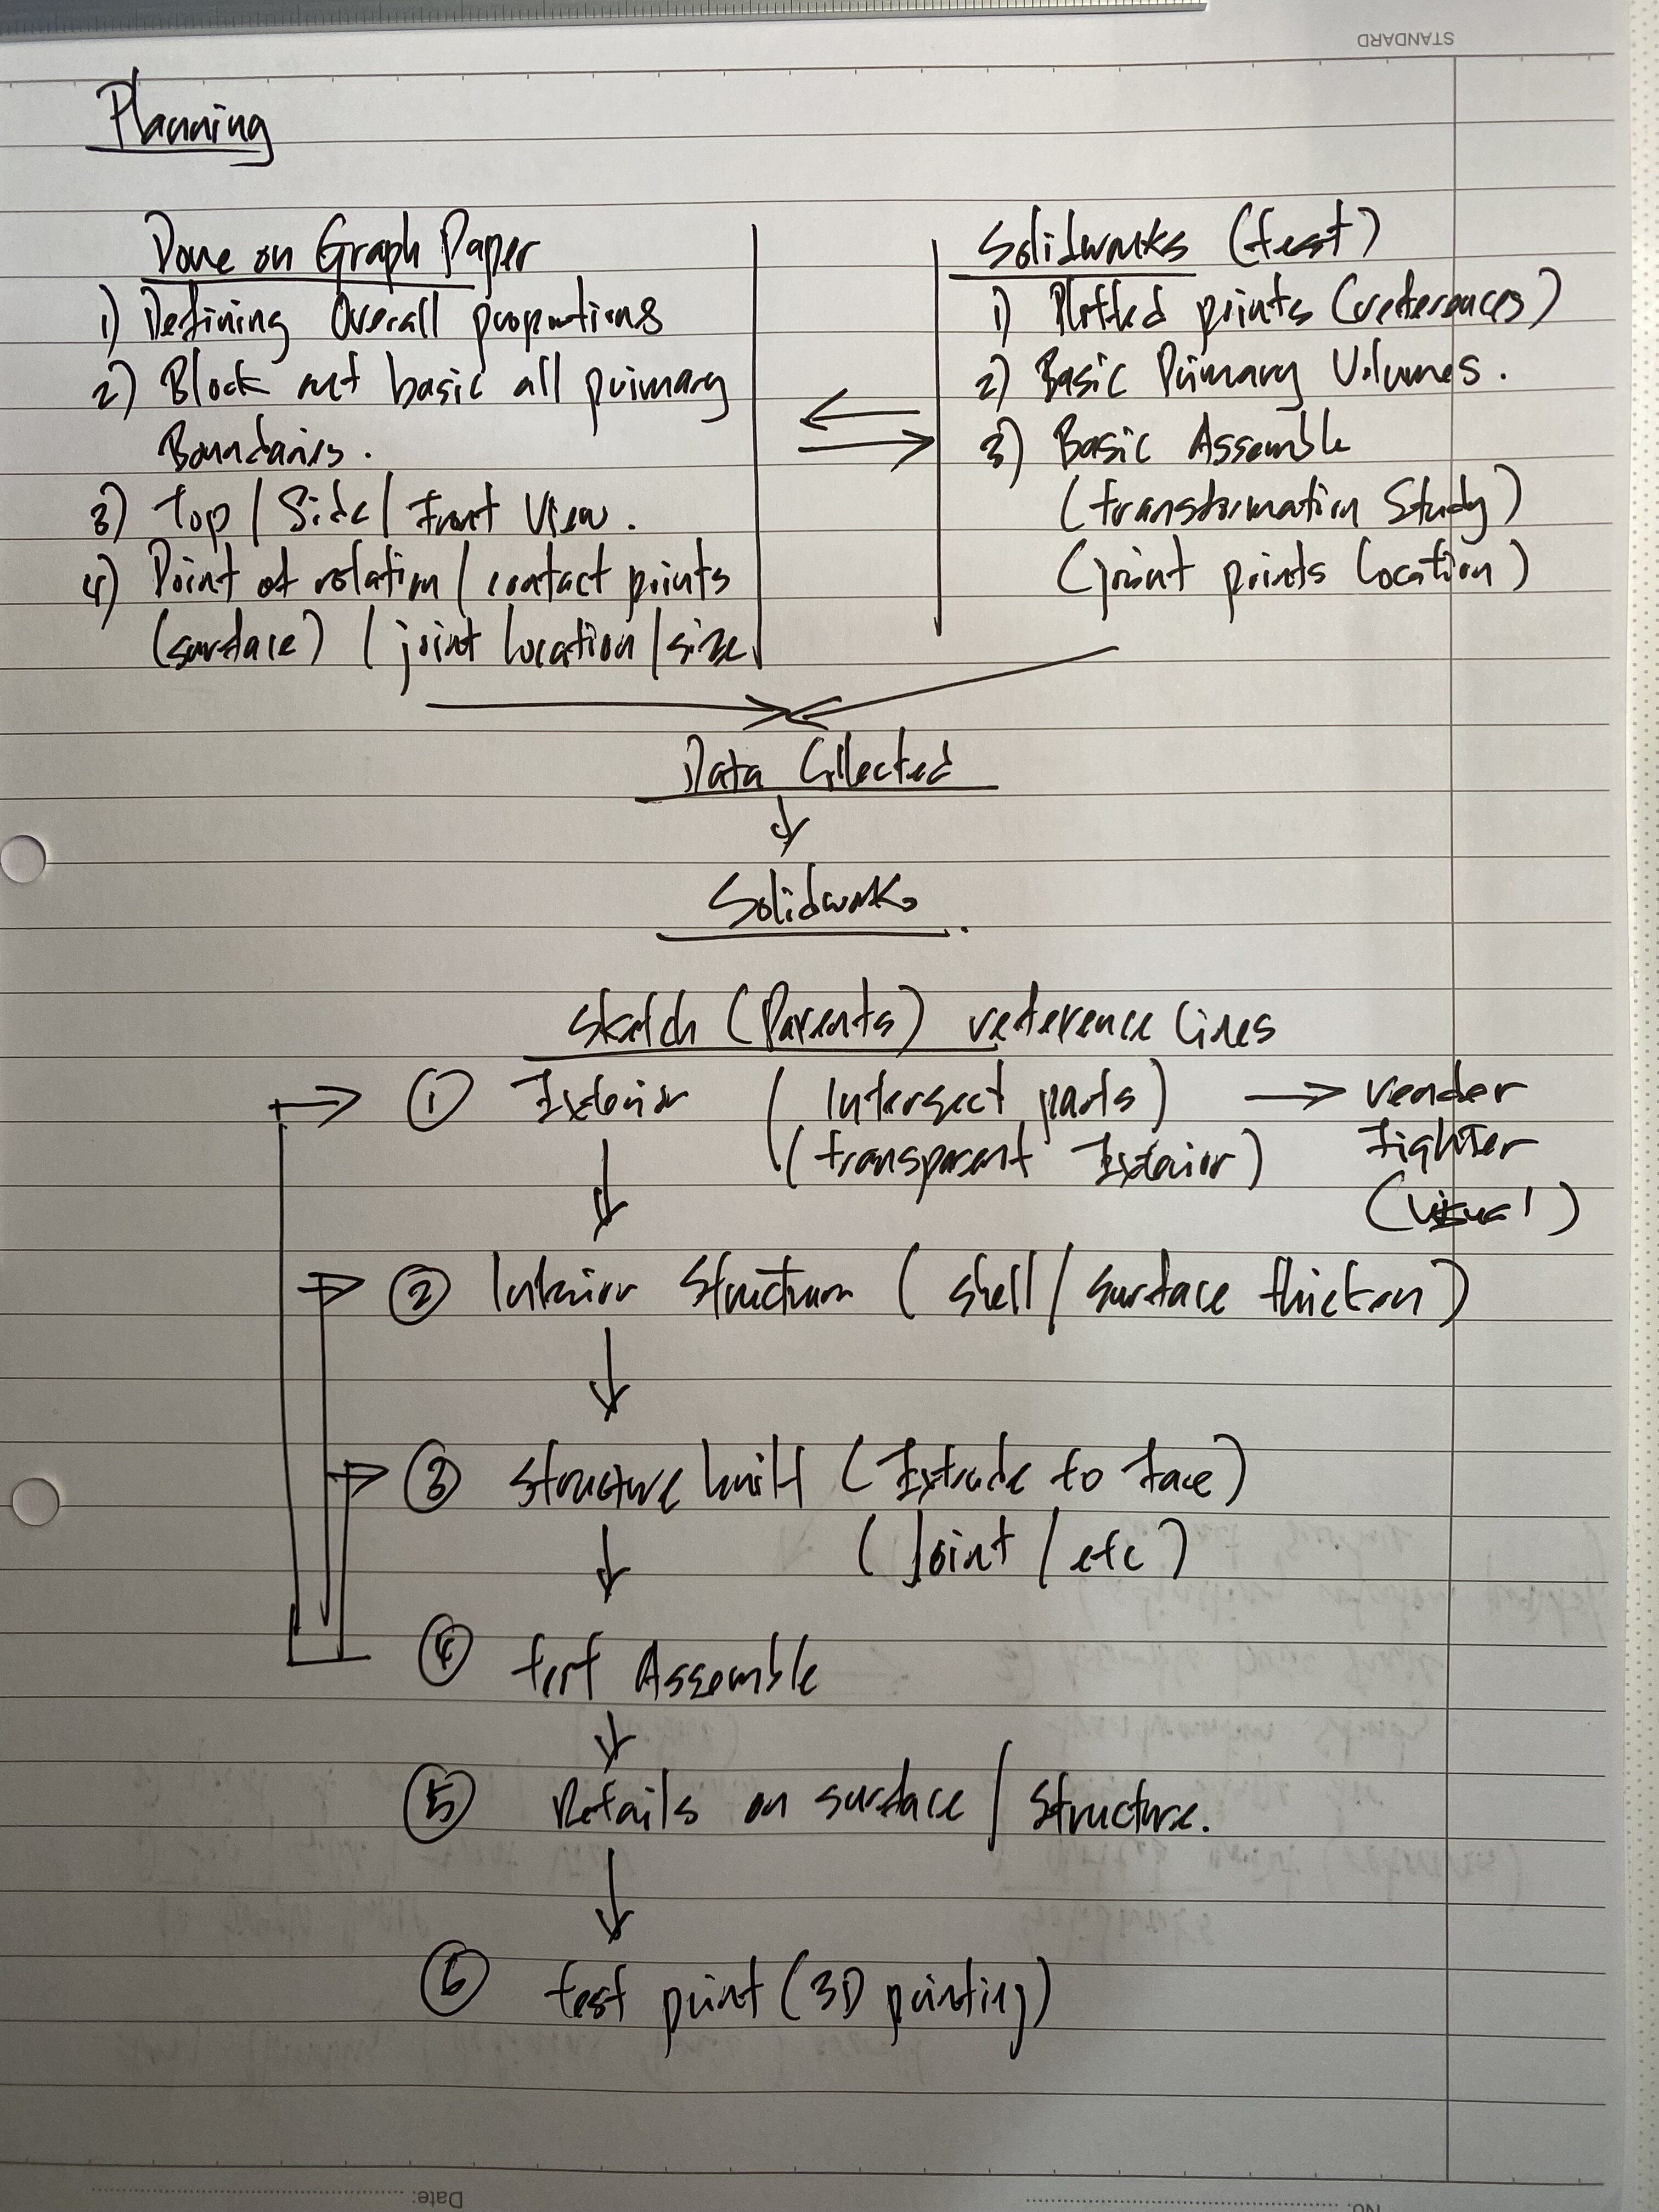 STANDARD
Planning
Done on Graph Paper
1) Defining Overall proportions
2) Block out basic all primary
Boundaries.
3) Top / Side / Front View.
4) Point of rotation / contact points
(surface) / joint location / size
Solidworks (test)
1) Plotted points (references)
2) Basic Primary Volumes.
3) Basic Assemble
(transformation Study)
(joint points location)
Data Collected
Solidworks.
Sketch (Parents) reference lines
① Exterior (Intersect parts) → render
(transparent Exterior) Fighter
(visual)
② Interior Structure (shell / surface thicken)
③ Structure built (Extrude to face)
(Joint / etc)
④ test Assemble
⑤ Details on surface / Structure.
⑥ test print (3D printing)
Date:
No.